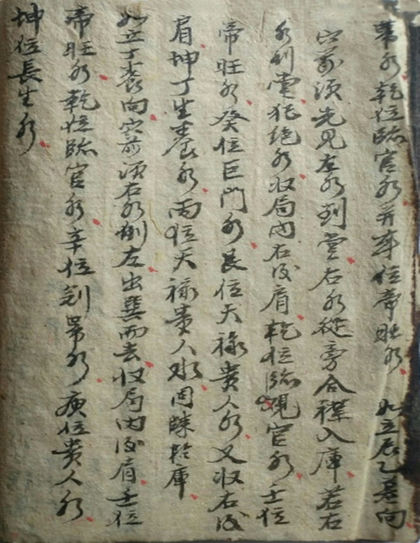 水乾位臨官水并辛位帝旺水 如立辰乙巽向
穴前須先見左水到堂右水從旁合襟入庫若右
水到堂犯絕水收局內右後肩乾位臨官水壬位
帝旺水癸位巨門水艮位天祿貴人水又收右後
肩坤丁生養水丙位天祿貴人水同歸於庫
如立丁未向穴前須右水倒左出巽而去收局內後肩壬位
帝旺水乾位臨官水辛位冠帶水庚位貴人水
坤位長生水